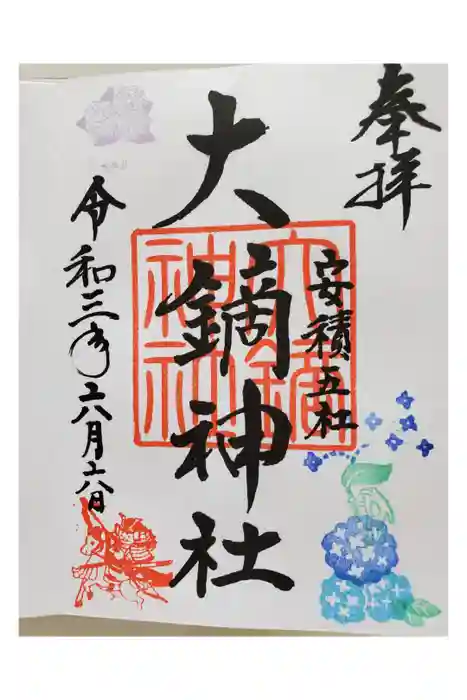 奉拝
安積五社
大鏑神社
大鏑
神社
令和三年六月六日